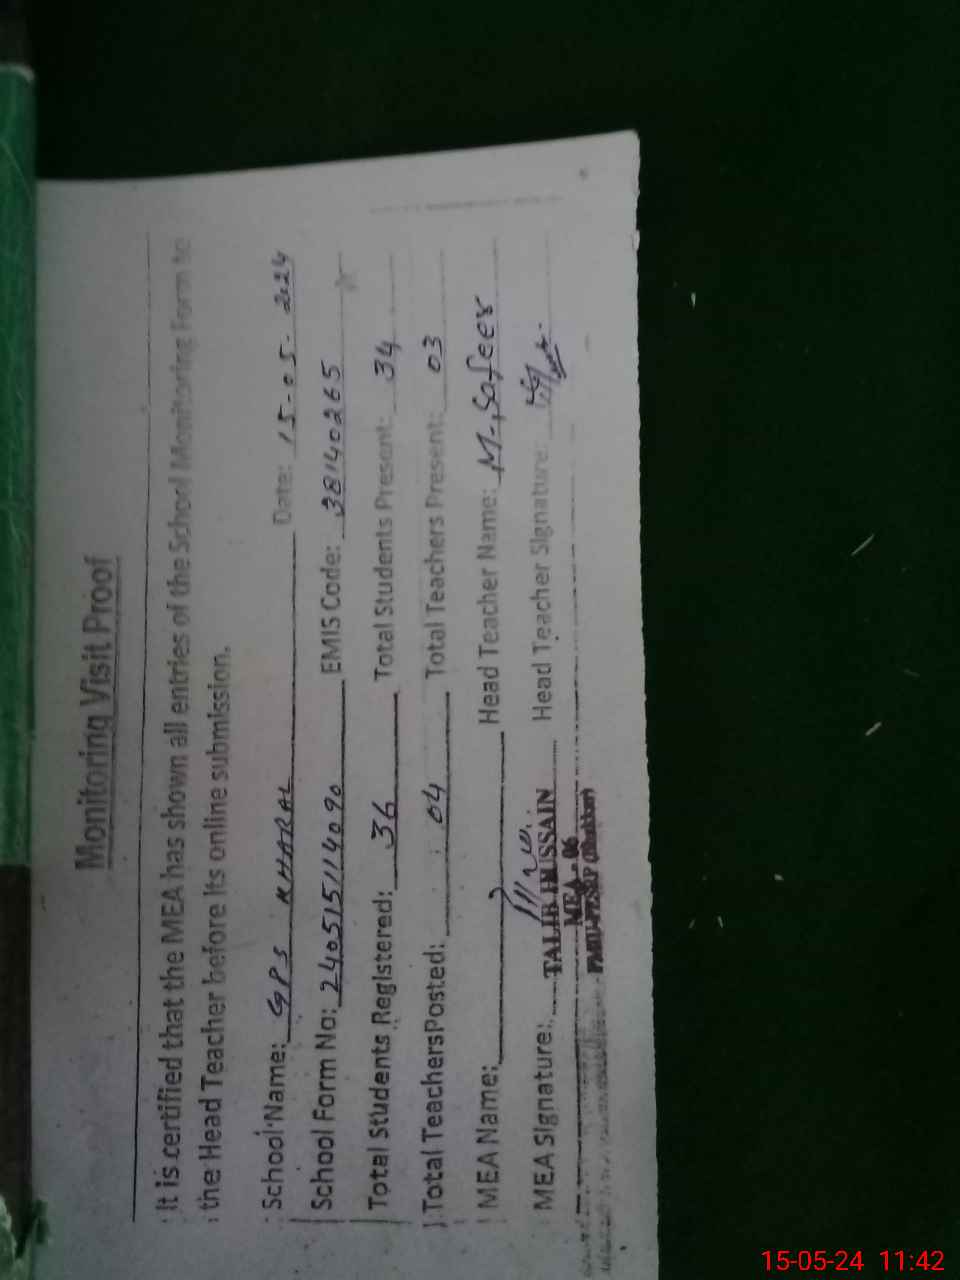 Monitoring Visit Proof
It is certified that the MEA has shown all entries of the School Monitoring Form to
the Head Teacher before its online submission.
School Name: GPS KHARAL Date: 15-05-2024
School Form No: 240515114090 EMIS Code: 38140265
Total Students Registered: 36 Total Students Present: 34
Total Teachers Posted: 04 Total Teachers Present: 03
MEA Name: Head Teacher Name: M. Safeer
MEA Signature: Head Teacher Signature:
TALIB HUSSAIN
MEA - 06
PMIU-PESRP (Bhakkar)
15-05-24 11:42